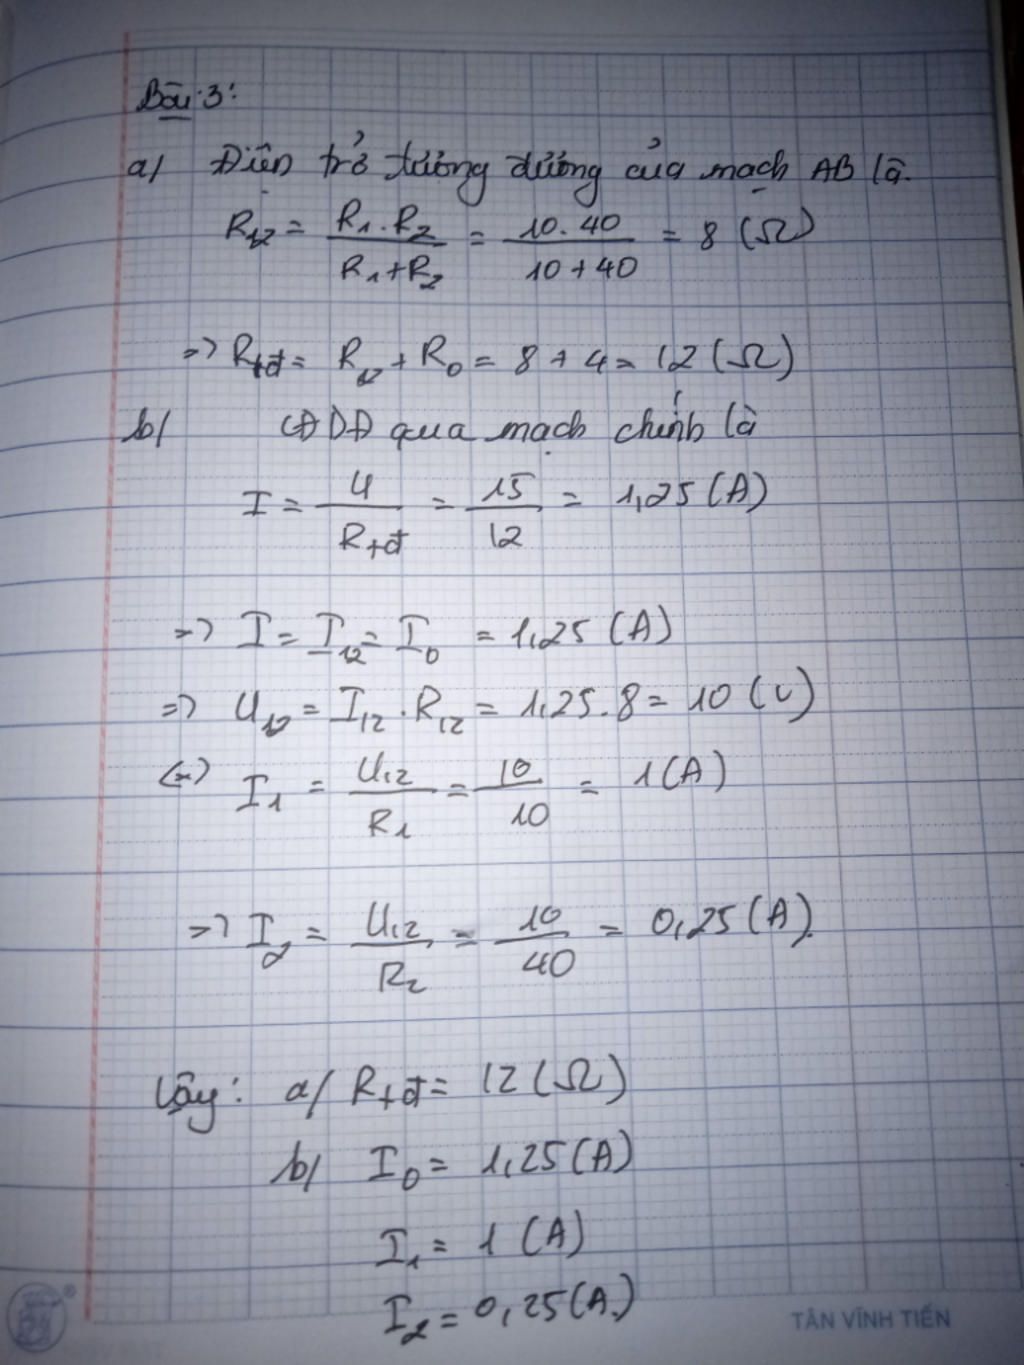 Bài 3:
a/ Điện trở tương đương của mạch AB là.
R12 = R1.R2 / R1+R2 = 10.40 / 10+40 = 8 (Ω)
=> Rtđ = R12 + R0 = 8 + 4 = 12 (Ω)
b/ CĐDĐ qua mạch chính là
I = U / Rtđ = 15 / 12 = 1,25 (A)
=> I = I12 = I0 = 1,25 (A)
=> U12 = I12 . R12 = 1,25.8 = 10 (V)
(=) I1 = U12 / R1 = 10 / 10 = 1 (A)
=> I2 = U12 / R2 = 10 / 40 = 0,25 (A).
Vậy: a/ Rtđ = 12 (Ω)
b/ I0 = 1,25 (A)
I1 = 1 (A)
I2 = 0,25 (A.)
TÂN VĨNH TIẾN